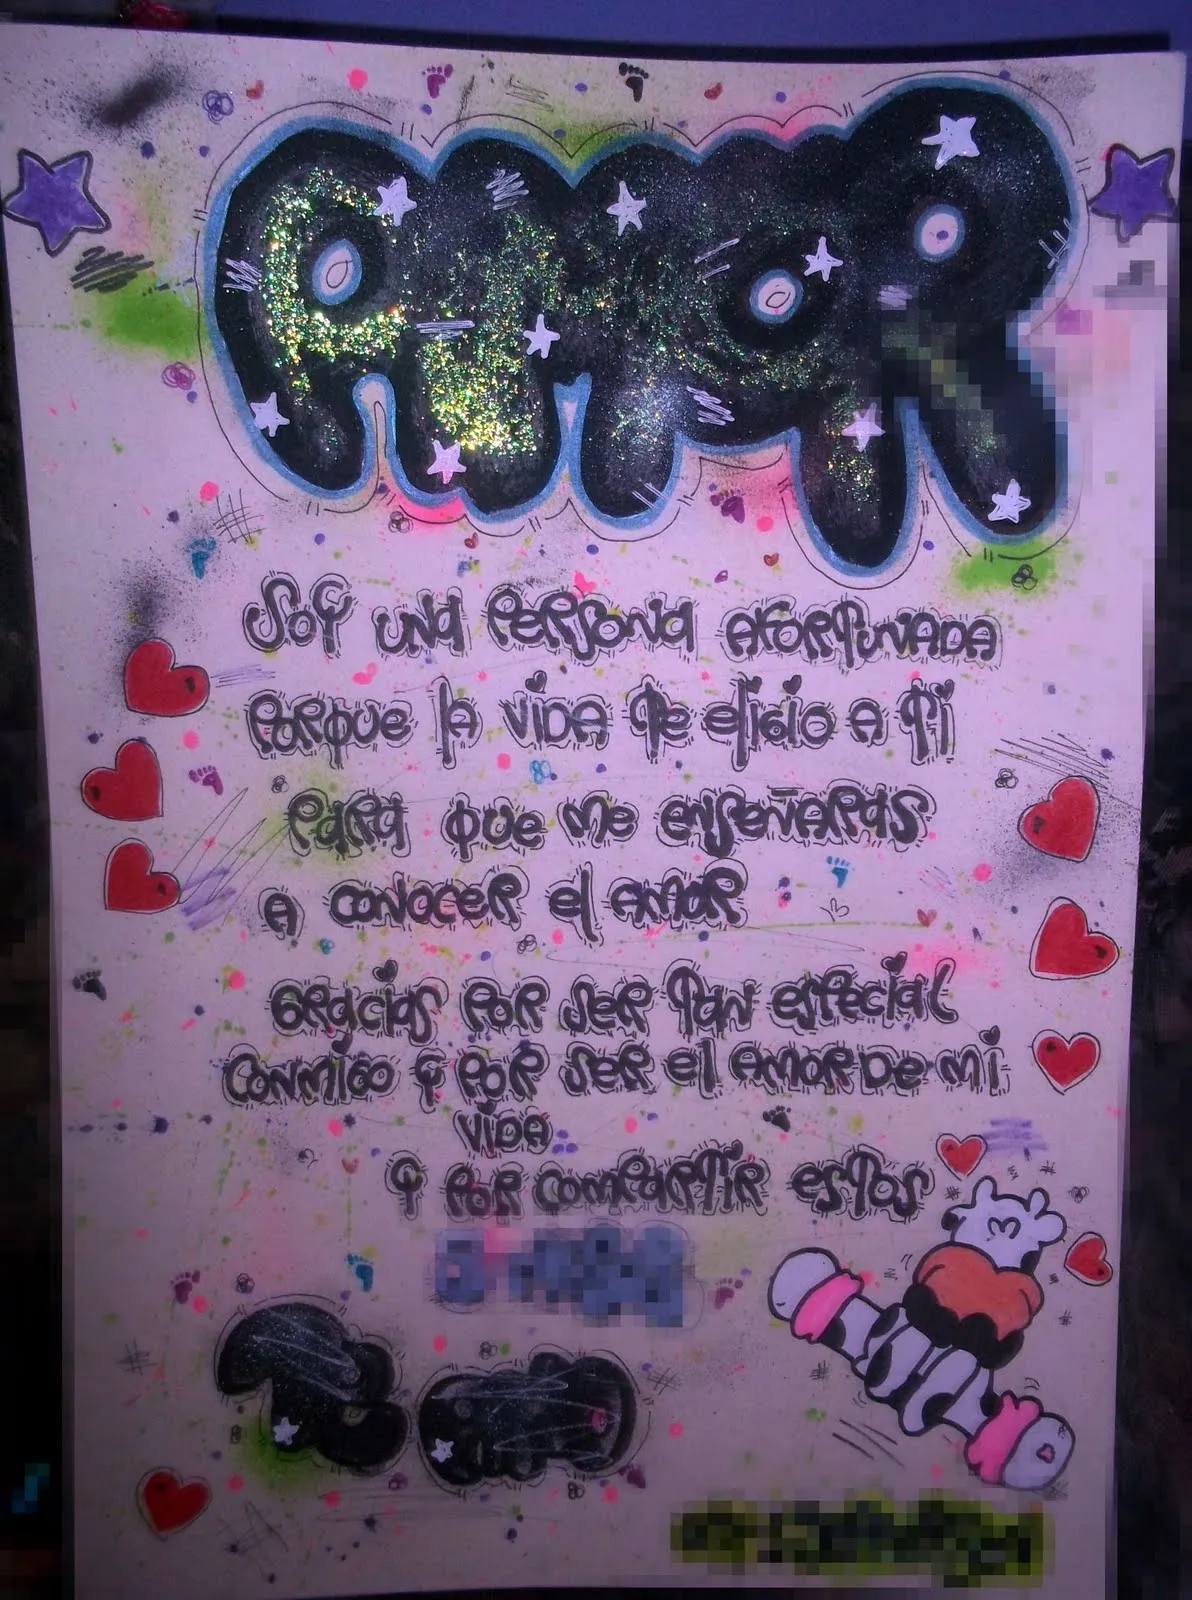 AMOR
Soy una persona afortunada
porque la vida te eligio a ti
para que me enseñaras
a conocer el amor
Gracias por ser tan especial
conmigo y por ser el amor de mi
vida
y por compartir estos
Te amo